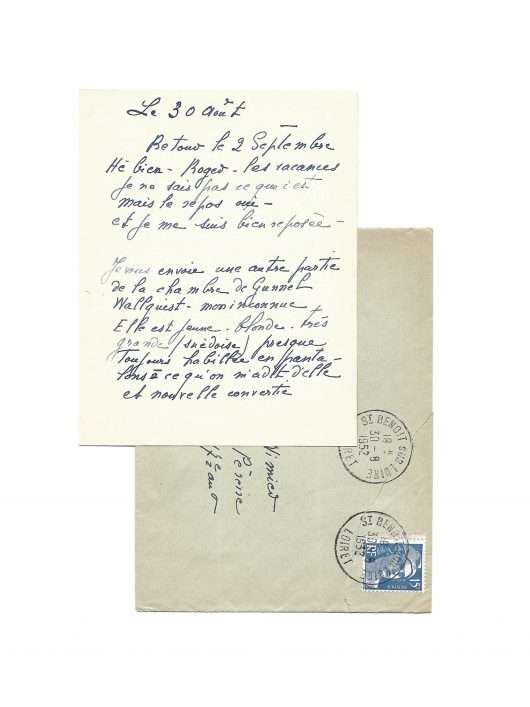 Le 30 Août
Retour le 2 Septembre
Hé bien - Roger - les vacances
je ne sais pas ce que c'est
mais le repos oui -
et je me suis bien reposée -
Je vous envoie une autre partie
de la chambre de Gunnel
Wallquist - mon inconnue
Elle est jeune - blonde - très
grande (suédoise) presque
toujours habillée en panta-
lons à ce qu'on m'a dit d'elle
et nouvelle convertie
ST BENOIT SUR LOIRE
18 H
30-8
1952
LOIRET
ST BENOIT SUR LOIRE
18 H
30-8
1952
LOIRET
15F